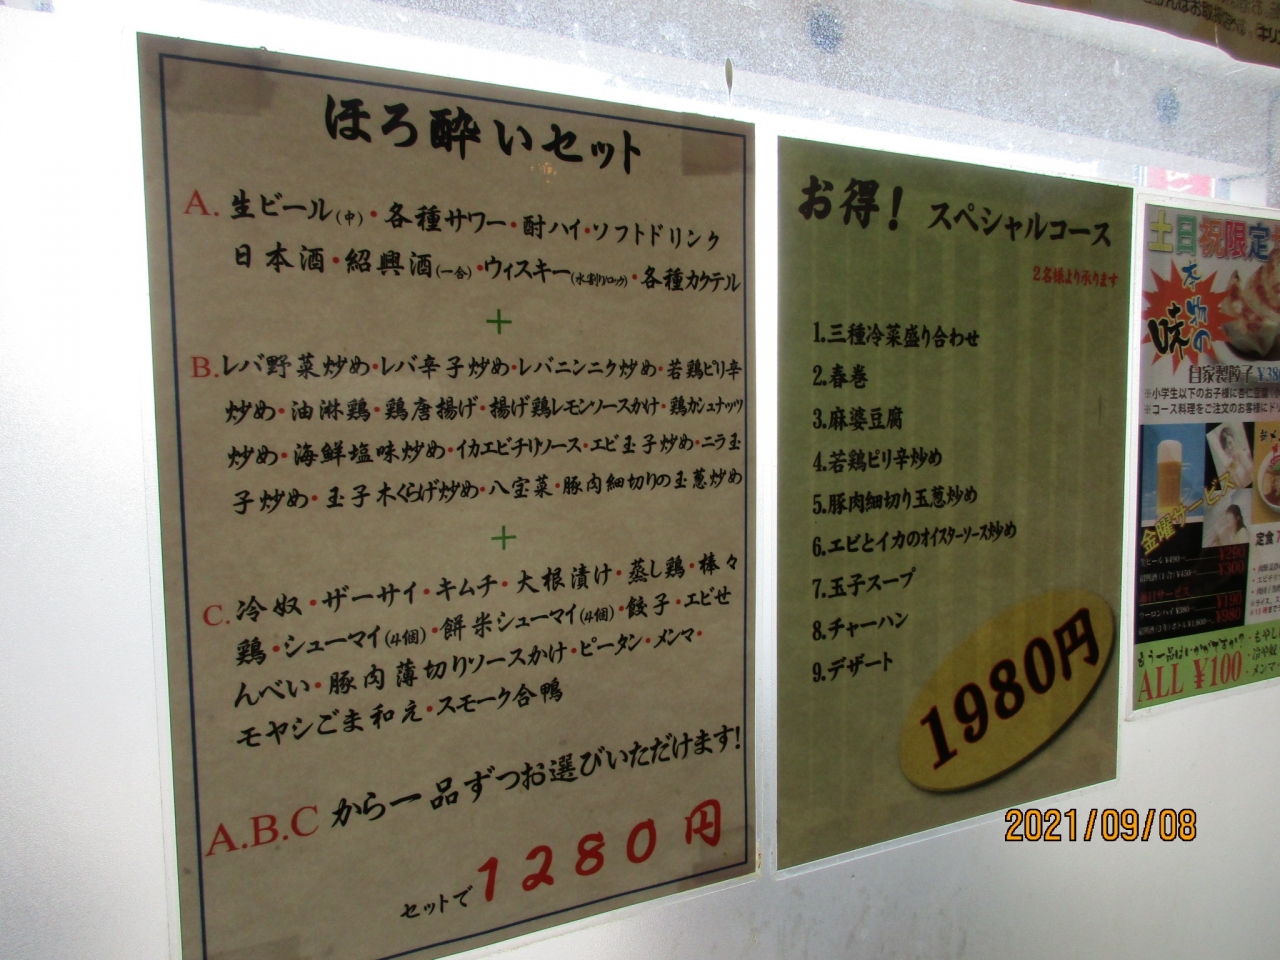 ほろ酔いセット
A. 生ビール(中)・各種サワー・酎ハイ・ソフトドリンク
日本酒・紹興酒(一合)・ウィスキー(水割りロック)・各種カクテル
+
B. レバ野菜炒め・レバ辛子炒め・レバニンニク炒め・若鶏ピリ辛
炒め・油淋鶏・鶏唐揚げ・揚げ鶏レモンソースかけ・鶏カシュナッツ
炒め・海鮮塩味炒め・イカエビチリソース・エビ玉子炒め・ニラ玉
子炒め・玉子木くらげ炒め・八宝菜・豚肉細切りの玉葱炒め
+
C. 冷奴・ザーサイ・キムチ・大根漬け・蒸し鶏・棒々
鶏・シューマイ(4個)・餅米シューマイ(4個)・餃子・エビせ
んべい・豚肉薄切りソースかけ・ピータン・メンマ・
モヤシごま和え・スモーク合鴨
A.B.C から一品ずつお選びいただけます!
セットで1280円
お得! スペシャルコース
2名様より承ります
1.三種冷菜盛り合わせ
2.春巻
3.麻婆豆腐
4.若鶏ピリ辛炒め
5.豚肉細切り玉葱炒め
6.エビとイカのオイスターソース炒め
7.玉子スープ
8.チャーハン
9.デザート
1980円
土日祝限定
本物の
味
自家製餃子 ¥38
※小学生以下のお子様に杏仁豆腐
※コース料理をご注文のお客様にド
金曜サービス
¥290
¥300
¥190
¥980
定食
もう一品はいかがですか?・もやし
ALL ¥100・冷や奴
・メンマ
2021/09/08